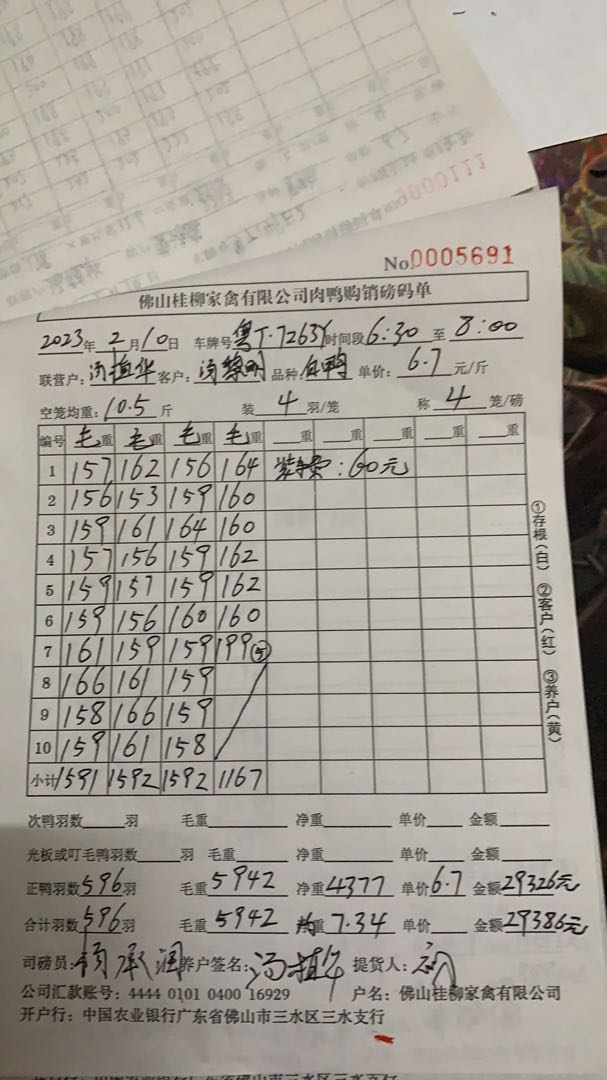 No.0005691
佛山桂柳家禽有限公司肉鸭购销磅码单
2023年 2月10日 车牌号 粤T·7263Y 时间段 6:30 至 8:00
联营户: 汤植华 客户: 品种: 白鸭 单价: 6.7 元/斤
空笼均重: 10.5 斤 装 4 羽/笼 称 4 笼/磅
编号 毛重 毛重 毛重 毛重 重 重 重 重 重
1 157 162 156 164 装车费:60元
2 156 153 159 160
3 159 161 164 160
4 157 156 159 162
5 159 157 159 162
6 159 156 160 160
7 161 159 159 199 ⑤
8 166 161 159
9 158 166 159
10 159 161 158
小计 1591 1592 1592 1167
①存根(白) ②客户(红) ③养户(黄)
次鸭羽数 羽 毛重 净重 单价 金额
光板或叮毛鸭羽数 羽 毛重 净重 单价 金额
正鸭羽数 596 羽 毛重 5942 净重 4377 单价 6.7 金额 29326元
合计羽数 596 羽 毛重 5942 均重 7.34 单价 金额 29386元
司磅员: 养户签名: 汤植华 提货人:
公司汇款账号: 4444 0101 0400 16929 户名: 佛山桂柳家禽有限公司
开户行: 中国农业银行广东省佛山市三水区三水支行